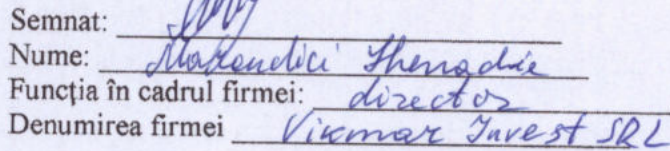 Semnat:
Nume: Ghenadie
Funcția în cadrul firmei: director
Denumirea firmei Vicmar Invest SRL